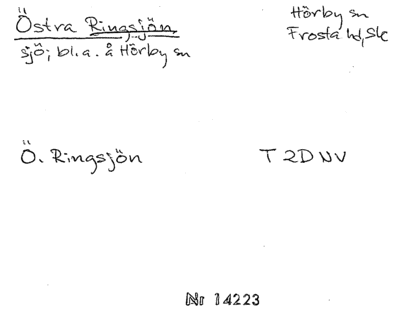 Östra Ringsjön
sjö; bl.a. å Hörby sn
Hörby sn
Frosta hd, Sk
Ö. Ringsjön
T 2D NV
Nr 14223